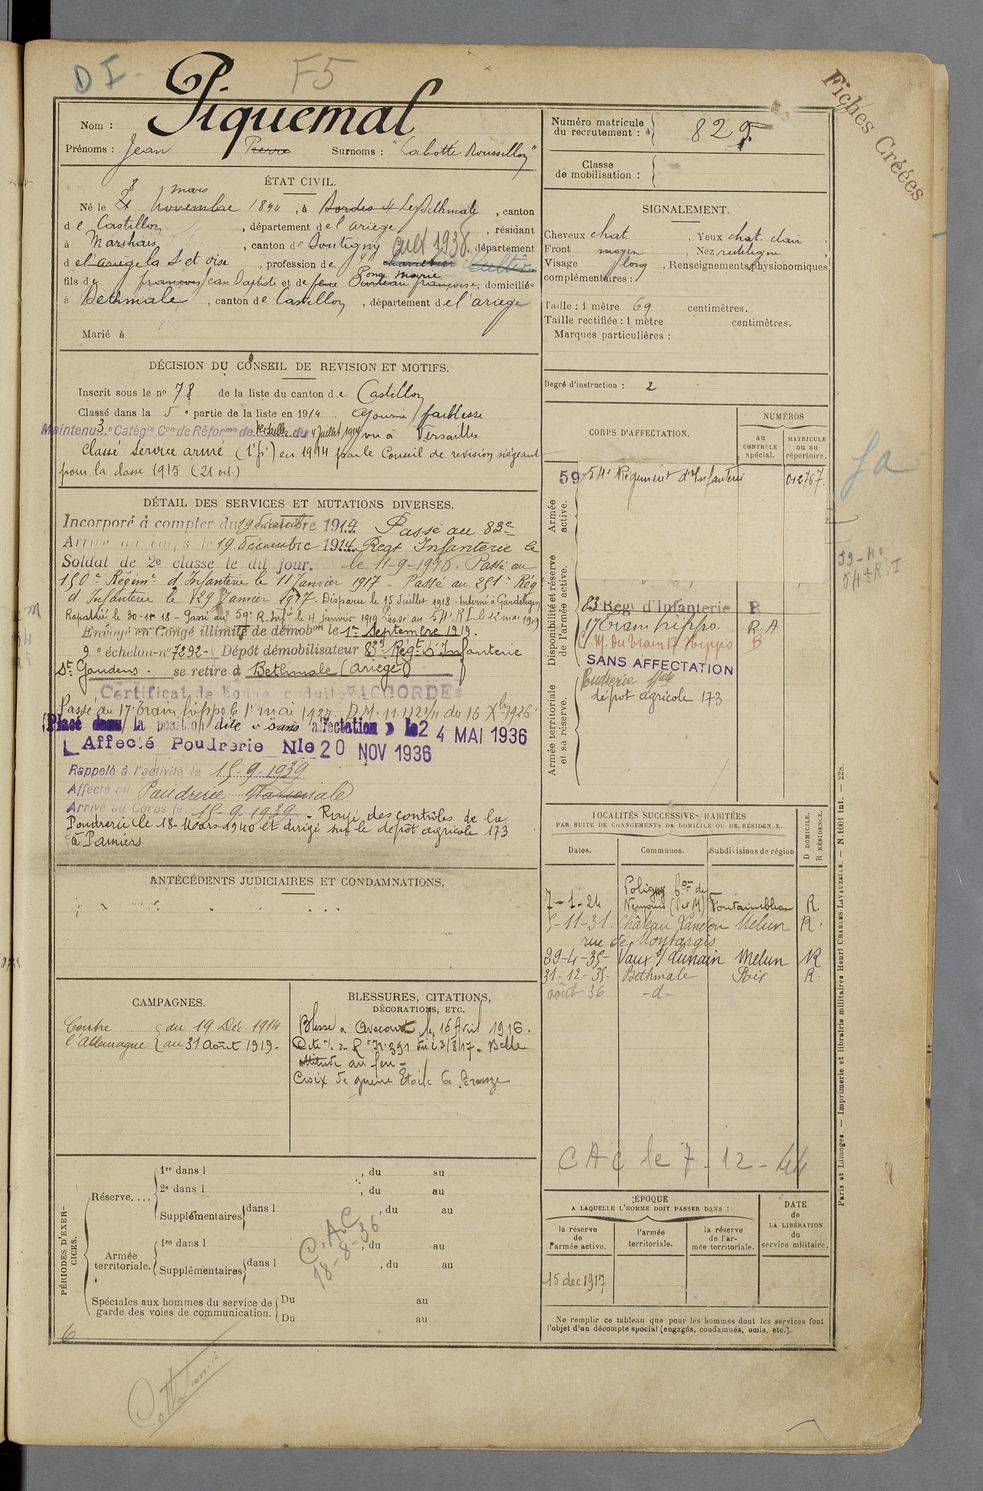 D I
F5
Fiches Créées
Nom : Piquemal
Prénoms : Jean Pierre Surnoms : "Cabotte Roussillon"
ÉTAT CIVIL.
Né le 8 mars novembre 1894, à Bordes s/ Lez Bethmale, canton
de Castillon, département de l'ariège, résidant
à Marshais, canton de Doutigny août 1936. département
de l'ariège la S. et oise, profession de Cultiv.
fils de françois Jean Baptiste et de françoise, domiciliés
à Bethmale, canton de Castillon, département de l'ariège
Marié à
DÉCISION DU CONSEIL DE REVISION ET MOTIFS.
Inscrit sous le no 78 de la liste du canton de Castillon
Classé dans la 5e partie de la liste en 1914. Ajourné faiblesse
Maintenu 3e Catégie Con de Réforme de Versailles du 4 Juillet 1914 vu à Versailles
Classé Service armé (1e p.) en 1914 par le Conseil de revision siégeant
pour la classe 1915 (21 oct.)
DÉTAIL DES SERVICES ET MUTATIONS DIVERSES.
Incorporé à compter du 19 décembre 1914 Passé au 83e
Arrivé au corps le 19 décembre 1914. Regt Infanterie le
Soldat de 2e classe le dit jour. le 11-9-1916. Passé au
150e Régimt d'Infanterie le 11 Janvier 1917 - Passé au 251e Rég
d'Infanterie le 29 Janvier 1917. Disparu le 15 Juillet 1918. Interné à Gardelegen
Rapatrié le 30-11-18 - Passé au 59e R. Infie le 4 janvier 1919 Passé au 54e R I. le 12 mai 1919
Envoyé en Congé illimité de démobon le 1er Septembre 1919.
2e échelon no 7292 - Dépôt démobilisateur 83e Regt d'Infanterie
St Gaudens - se retire à Bethmale (Ariège)
Certificat de Bonne conduite "ACCORDÉ"
Passé au 17e train hippo le 1er mai 1927 D.M. 11.421/1 du 16 Xbre 1926
Placé dans la position dite « sans affectation » le 24 MAI 1936
Affecté Poudrerie Nle 20 NOV 1936
Rappelé à l'activité le 15-9-1939
Affecté au Poudrerie Nationale
Arrivé au Corps le 15-9-1939. Rayé des contrôles de la
Poudrerie le 18-Mars 1940 et dirigé sur le dépôt agricole 173
à Pamiers
ANTÉCÉDENTS JUDICIAIRES ET CONDAMNATIONS.
CAMPAGNES.
Contre l'Allemagne { du 19 Déc. 1914
au 31 Août 1919.
BLESSURES, CITATIONS,
DÉCORATIONS, ETC.
Blessé à Avocourt le 16 Avril 1916.
Cité à l'o. du R. no 391 du 23/8/17. Belle
attitude au feu -
Croix de guerre Étoile de Bronze
PÉRIODES D'EXERCICES.
Réserve....
1re dans l , du au
2e dans l , du au
Supplémentaires dans l , du au
Armée territoriale.
1re dans l , du au
Supplémentaires dans l , du au
C.A.C.
18-8-36
Spéciales aux hommes du service de garde des voies de communication. Du au
Du au
6
Numéro matricule du recrutement : 829
Classe de mobilisation :
SIGNALEMENT.
Cheveux chat , Yeux chat. clair
Front moyen , Nez rectiligne
Visage long , Renseignements physionomiques
complémentaires :
Taille : 1 mètre 69 centimètres.
Taille rectifiée : 1 mètre centimètres.
Marques particulières :
Degré d'instruction : 2
CORPS D'AFFECTATION.
NUMÉROS
au contrôle spécial.
MATRICULE ou au répertoire.
Armée active.
59 54e Régiment d'Infanterie 012767.
Disponibilité et réserve de l'armée active.
83 Regt d'Infanterie B
17e train hippo R. A
C. M. du train 17 Hippo B
SANS AFFECTATION
Poudrerie Nale
dépôt agricole 173
Armée territoriale et sa réserve.
LOCALITÉS SUCCESSIVES HABITÉES
PAR SUITE DE CHANGEMENTS DE DOMICILE OU DE RÉSIDENCE.
Dates. Communes. Subdivisions de région D DOMICILE. R RÉSIDENCE.
7-1-24 Poligny Con de Nemours (S et M) Fontainebleau R.
5-11-31. Château Landon Melun R.
rue de Montargis
29-4-35- Vaux s/ Lunain Melun R
31-12-35- Bethmale Foix R.
août 36 -d-
CAC le 7-12-44
ÉPOQUE
A LAQUELLE L'HOMME DOIT PASSER DANS :
la réserve de l'armée active.
l'armée territoriale.
la réserve de l'armée territoriale.
DATE de LA LIBÉRATION du service militaire.
15 dec 1917
Ne remplir ce tableau que pour les hommes dont les services font
l'objet d'un décompte spécial (engagés, condamnés, omis, etc.).
Paris et Limoges. — Imprimerie et librairie militaires Henri CHARLES-LAVAUZELLE. — N. 1001 int. — 228.